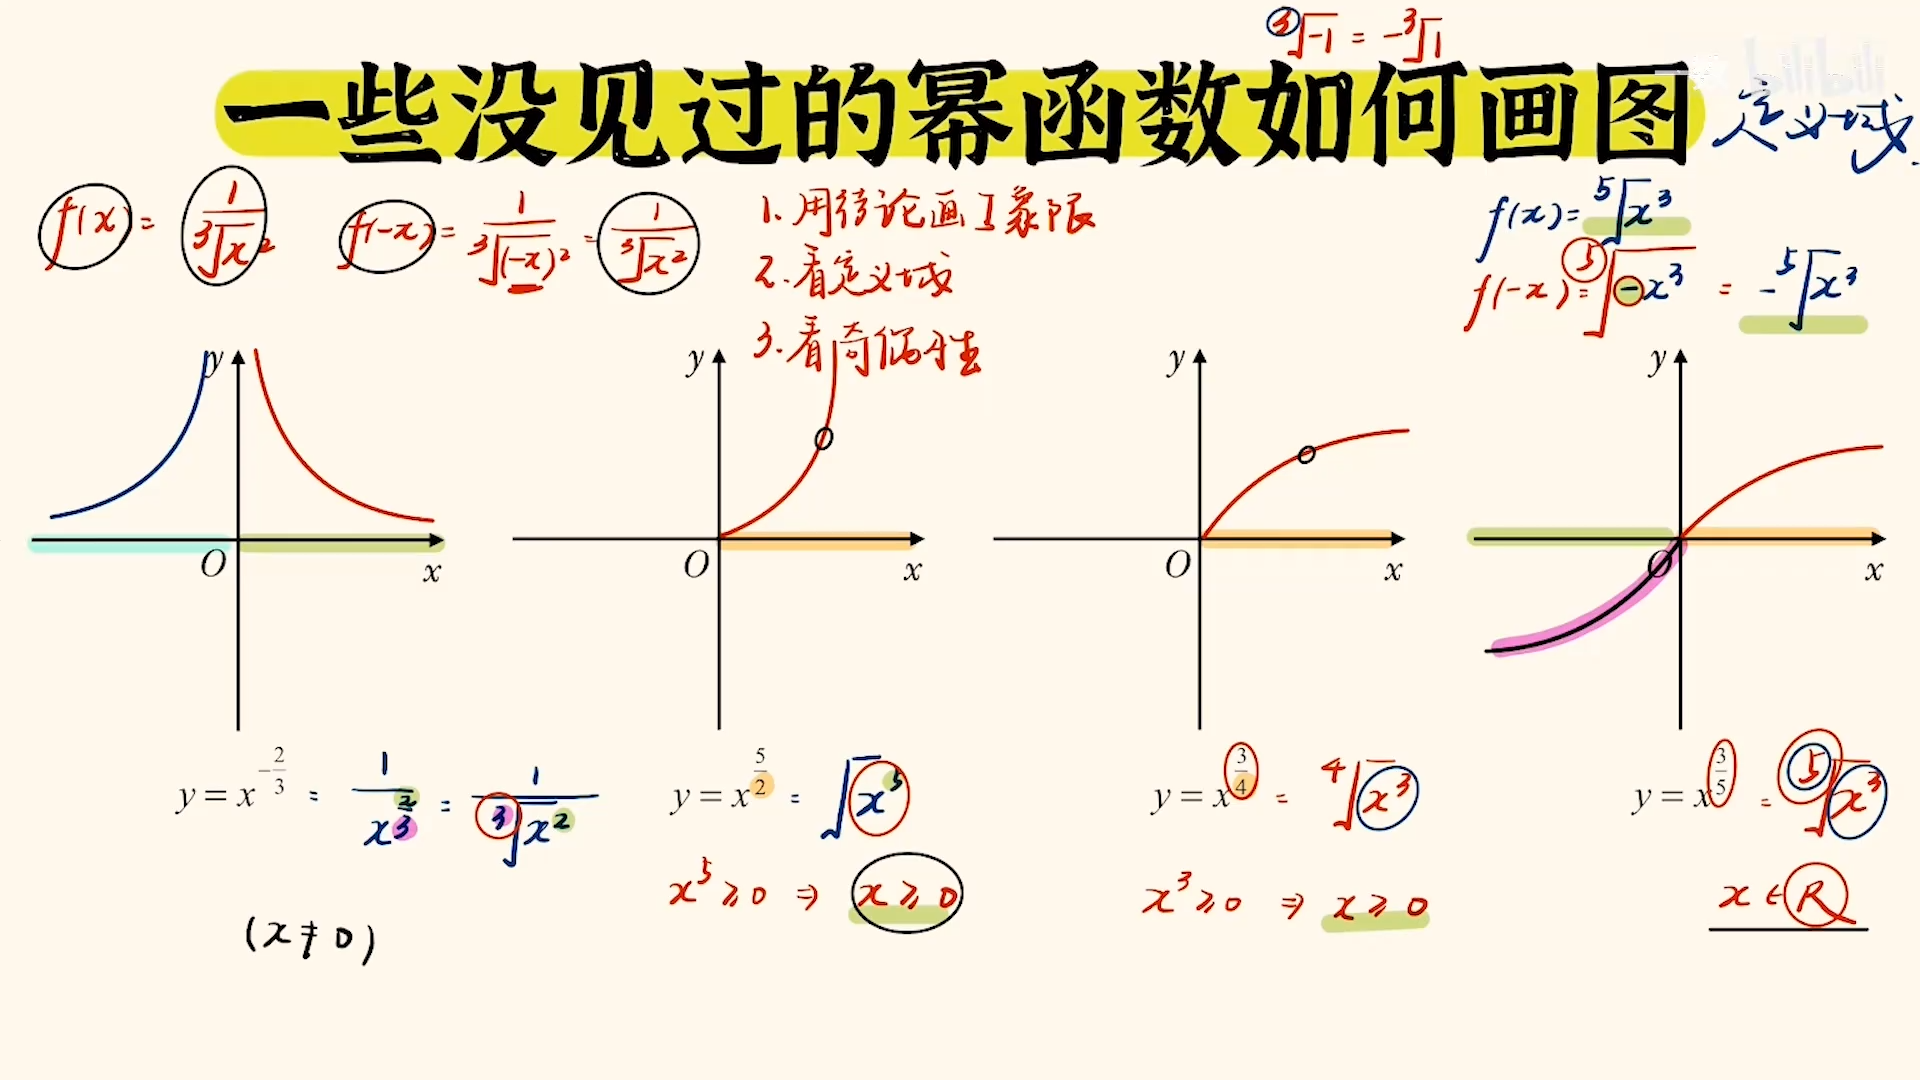 ∛-1 = -∛1
一些没见过的幂函数如何画图
定义域
bilibili
f(x) = 1/∛x²
f(-x) = 1/∛(-x)² = 1/∛x²
1. 用结论画I象限
2. 看定义域
3. 看奇偶性
f(x) = ⁵√x³
f(-x) = ⁵√-x³ = -⁵√x³
y
O
x
y
O
x
y
O
x
y
O
x
y = x^(-2/3) = 1/x^(2/3) = 1/∛x²
(x ≠ 0)
y = x^(5/2) = √x⁵
x⁵ ⩾ 0 ⇒ x ⩾ 0
y = x^(3/4) = ⁴√x³
x³ ⩾ 0 ⇒ x ⩾ 0
y = x^(3/5) = ⁵√x³
x ∈ R